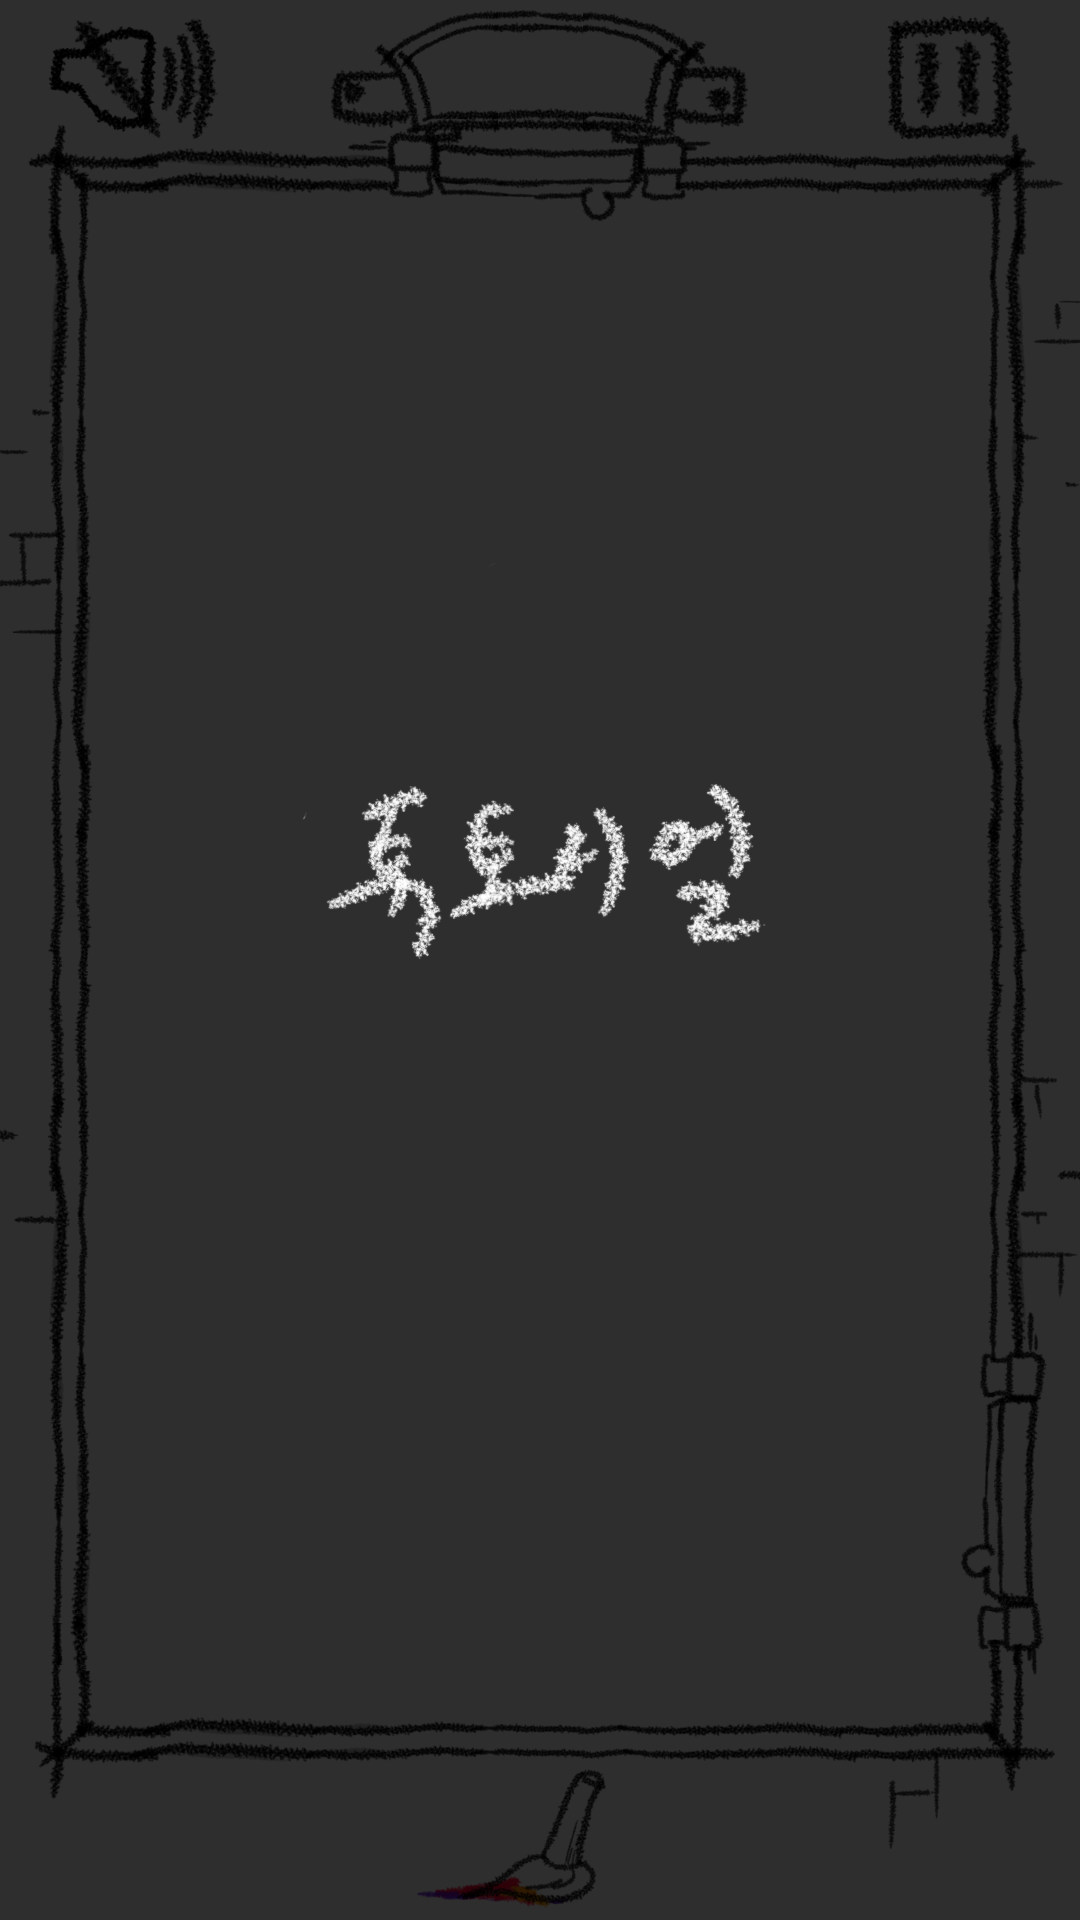 튜토리얼